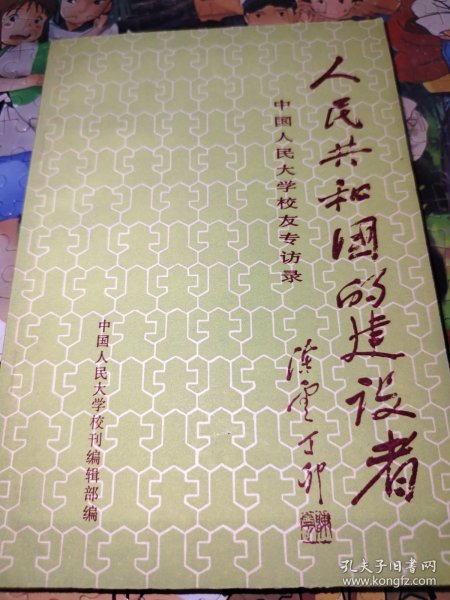 人民共和国的建设者
中国人民大学校友专访录
陈云丁卯
中国人民大学校刊编辑部编
孔夫子旧书网
www.kongfz.com